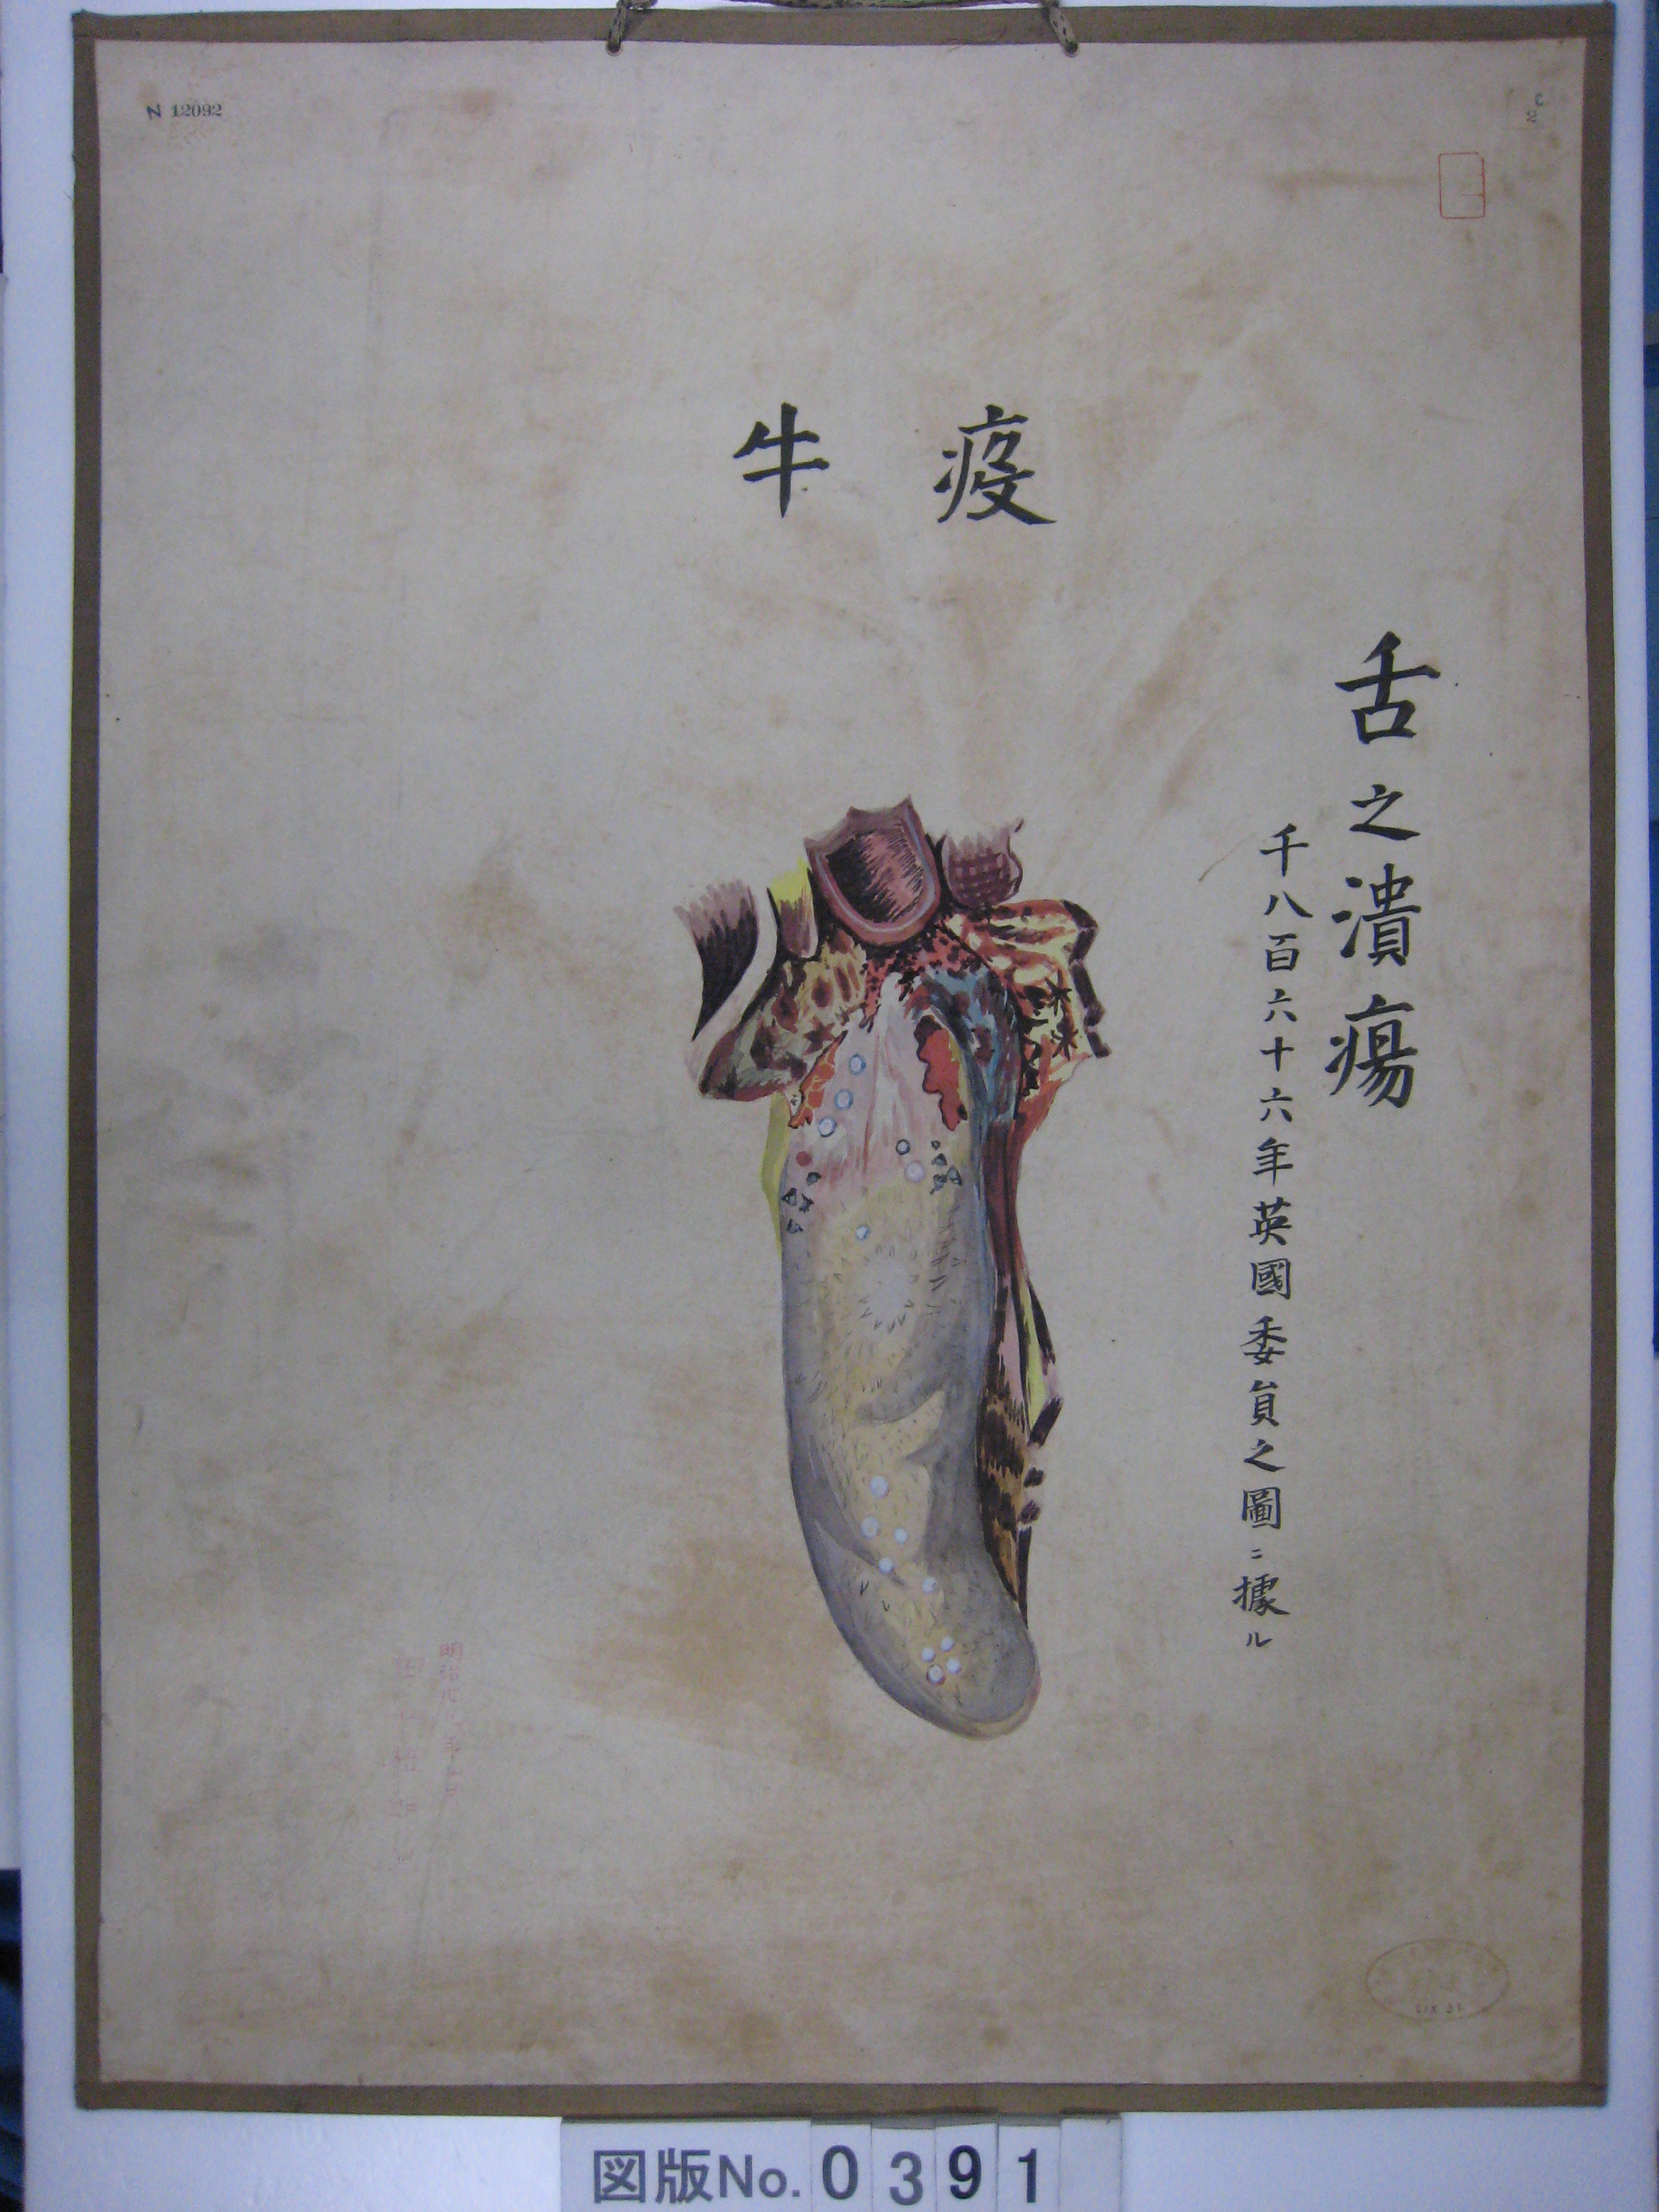 N 12092
C
2
牛疫
舌之潰瘍
千八百六十六年英國委員之圖ニ據ル
明治
図版No. 0391